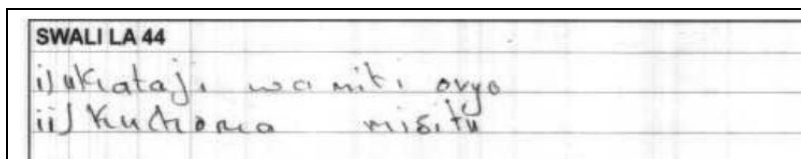 SWALI LA 44
i) ukataji wa miti ovyo
ii) kuchoma misitu